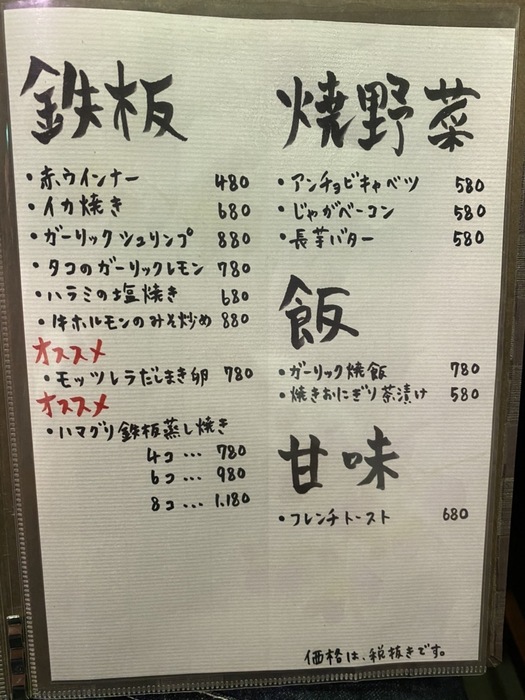 鉄板
・赤ウインナー 480
・イカ焼き 680
・ガーリックシュリンプ 880
・タコのガーリックレモン 780
・ハラミの塩焼き 680
・牛ホルモンのみそ炒め 880
オススメ
・モッツレラだしまき卵 780
オススメ
・ハマグリ鉄板蒸し焼き
4コ … 780
6コ … 980
8コ … 1.180
焼野菜
・アンチョビキャベツ 580
・じゃがベーコン 580
・長芋バター 580
飯
・ガーリック焼飯 780
・焼きおにぎり茶漬け 580
甘味
・フレンチトースト 680
価格は、税抜きです。